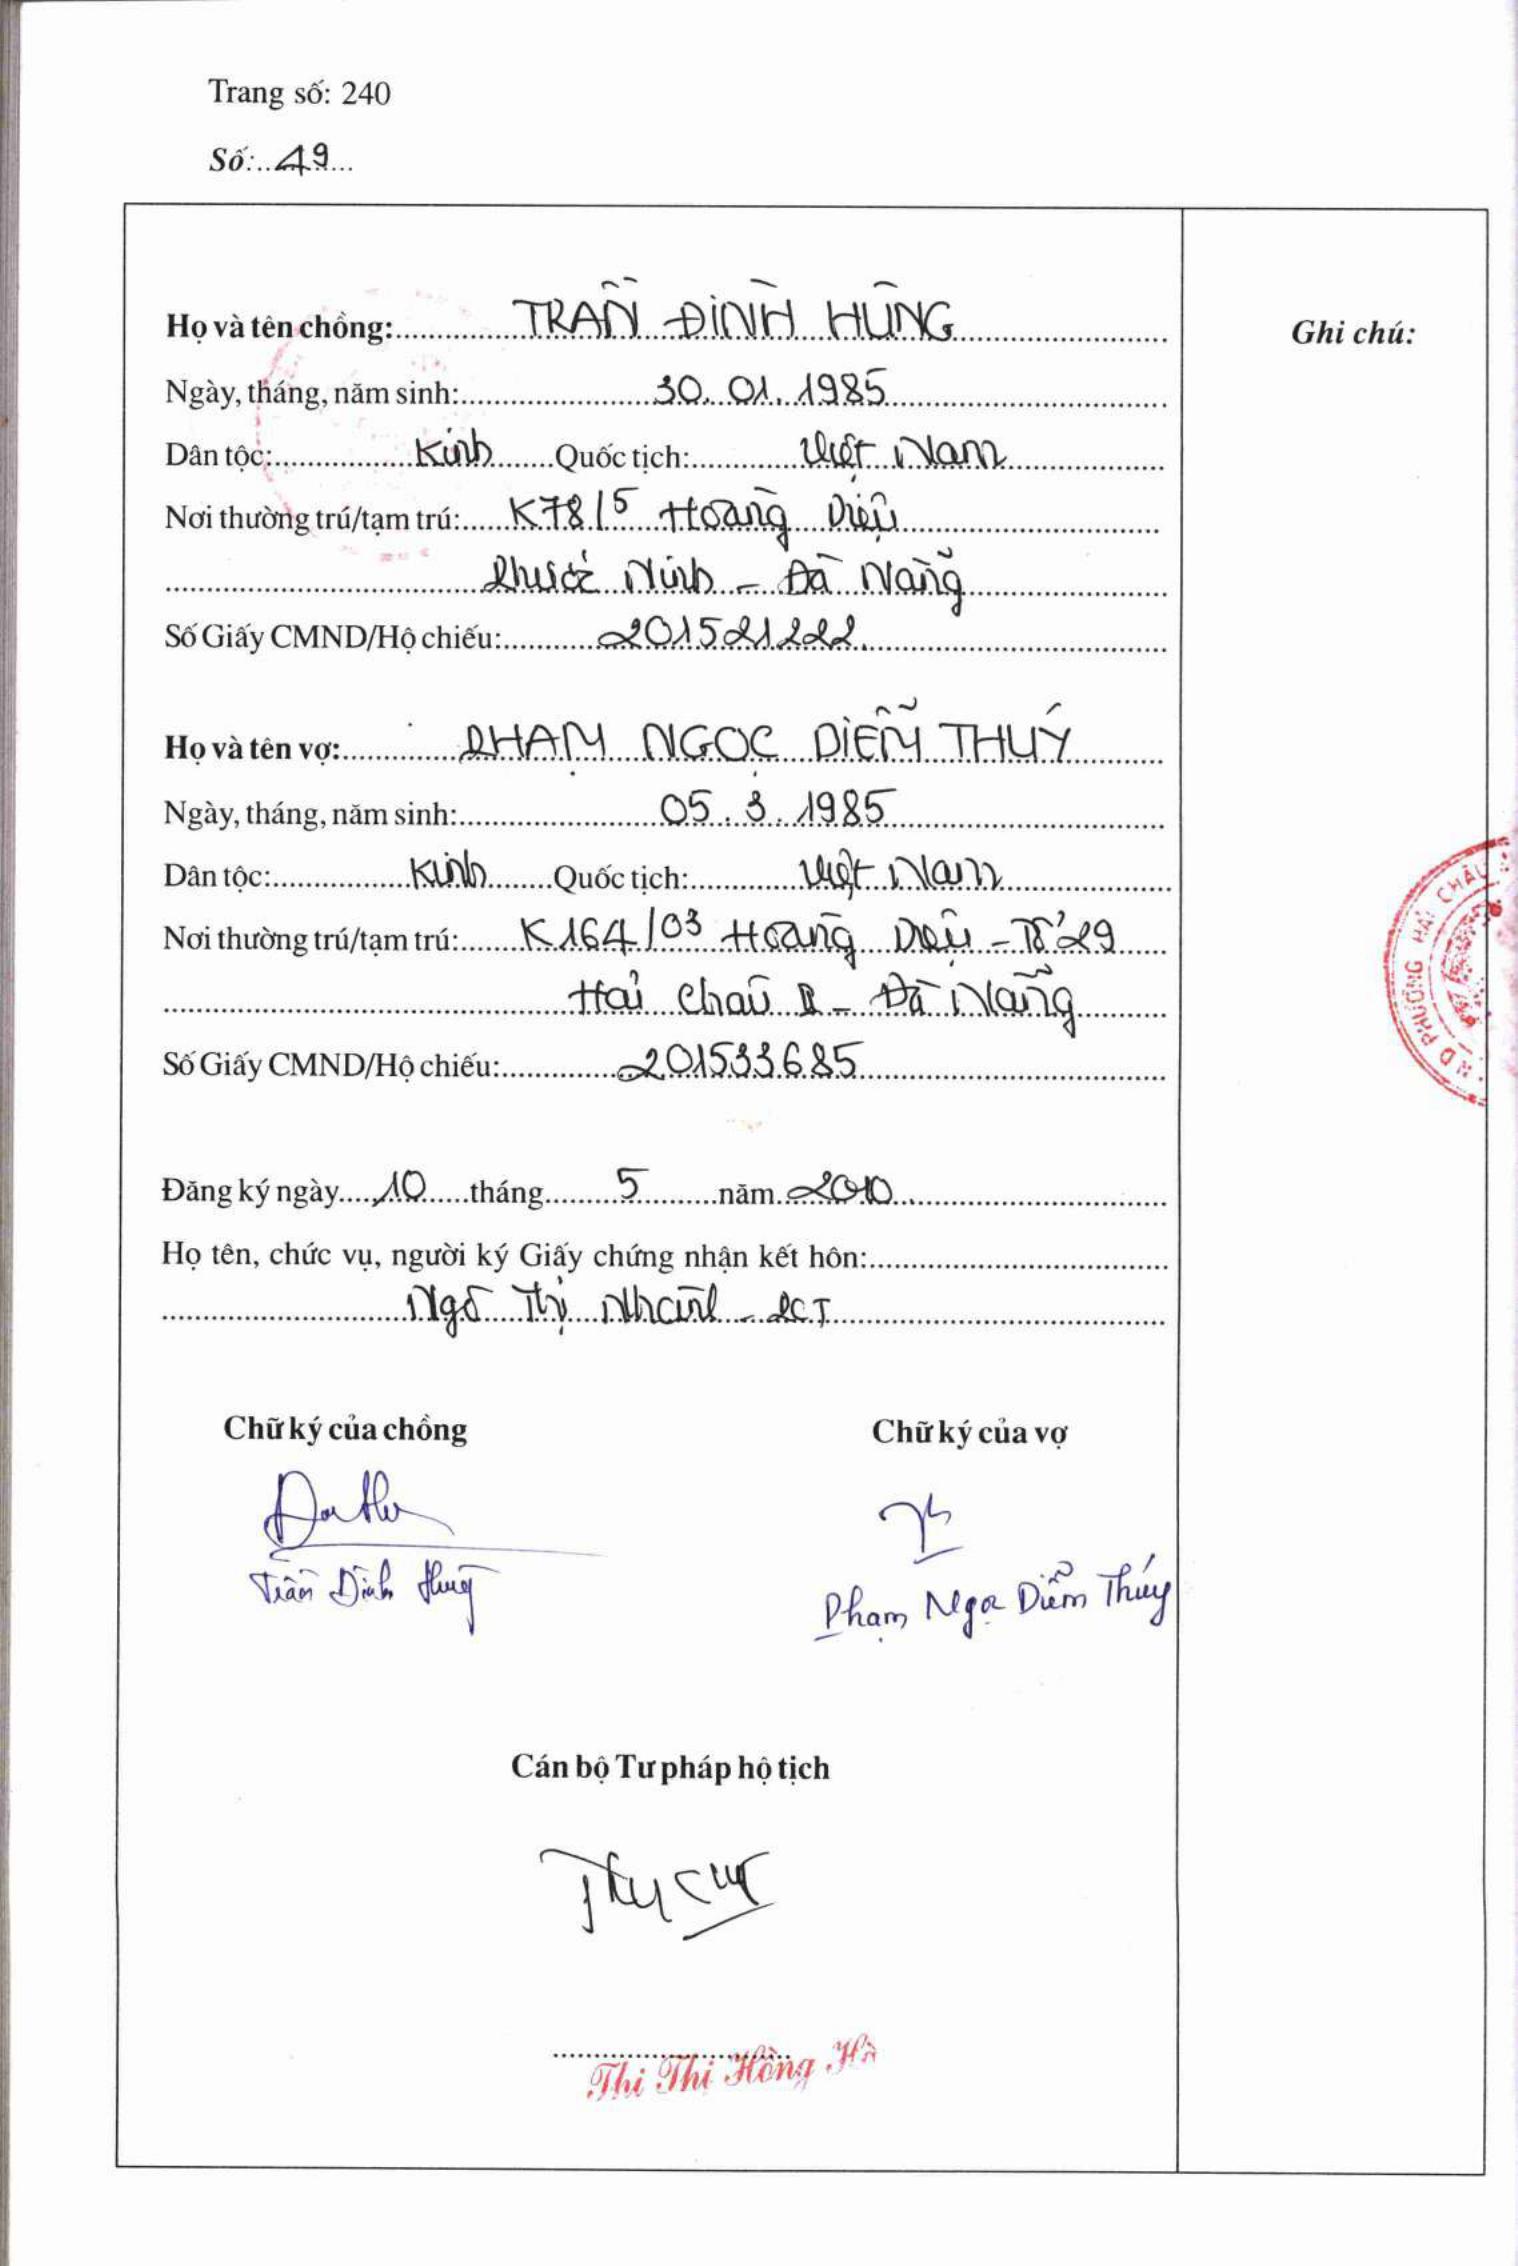 Trang số: 240
Số: 49
Họ và tên chồng: TRẦN ĐÌNH HÙNG
Ghi chú:
Ngày, tháng, năm sinh: 30. 01. 1985
Dân tộc: Kinh Quốc tịch: Việt Nam
Nơi thường trú/tạm trú: K78/5 Hoàng Diệu
Phước Ninh - Đà Nẵng
Số Giấy CMND/Hộ chiếu: 201521222
Họ và tên vợ: PHẠM NGỌC DIỄM THUÝ
Ngày, tháng, năm sinh: 05. 3. 1985
Dân tộc: Kinh Quốc tịch: Việt Nam
Nơi thường trú/tạm trú: K164/03 Hoàng Diệu - Tổ 29
Hải Châu II - Đà Nẵng
Số Giấy CMND/Hộ chiếu: 201533685
Đăng ký ngày 10 tháng 5 năm 2010
Họ tên, chức vụ, người ký Giấy chứng nhận kết hôn:
Ngô Thị - PCT
Chữ ký của chồng
Chữ ký của vợ
Trần Đình Hùng
Phạm Ngọc Diễm Thúy
Cán bộ Tư pháp hộ tịch
Thi Thị Hồng
N.D PHƯỜNG HẢI CHÂU